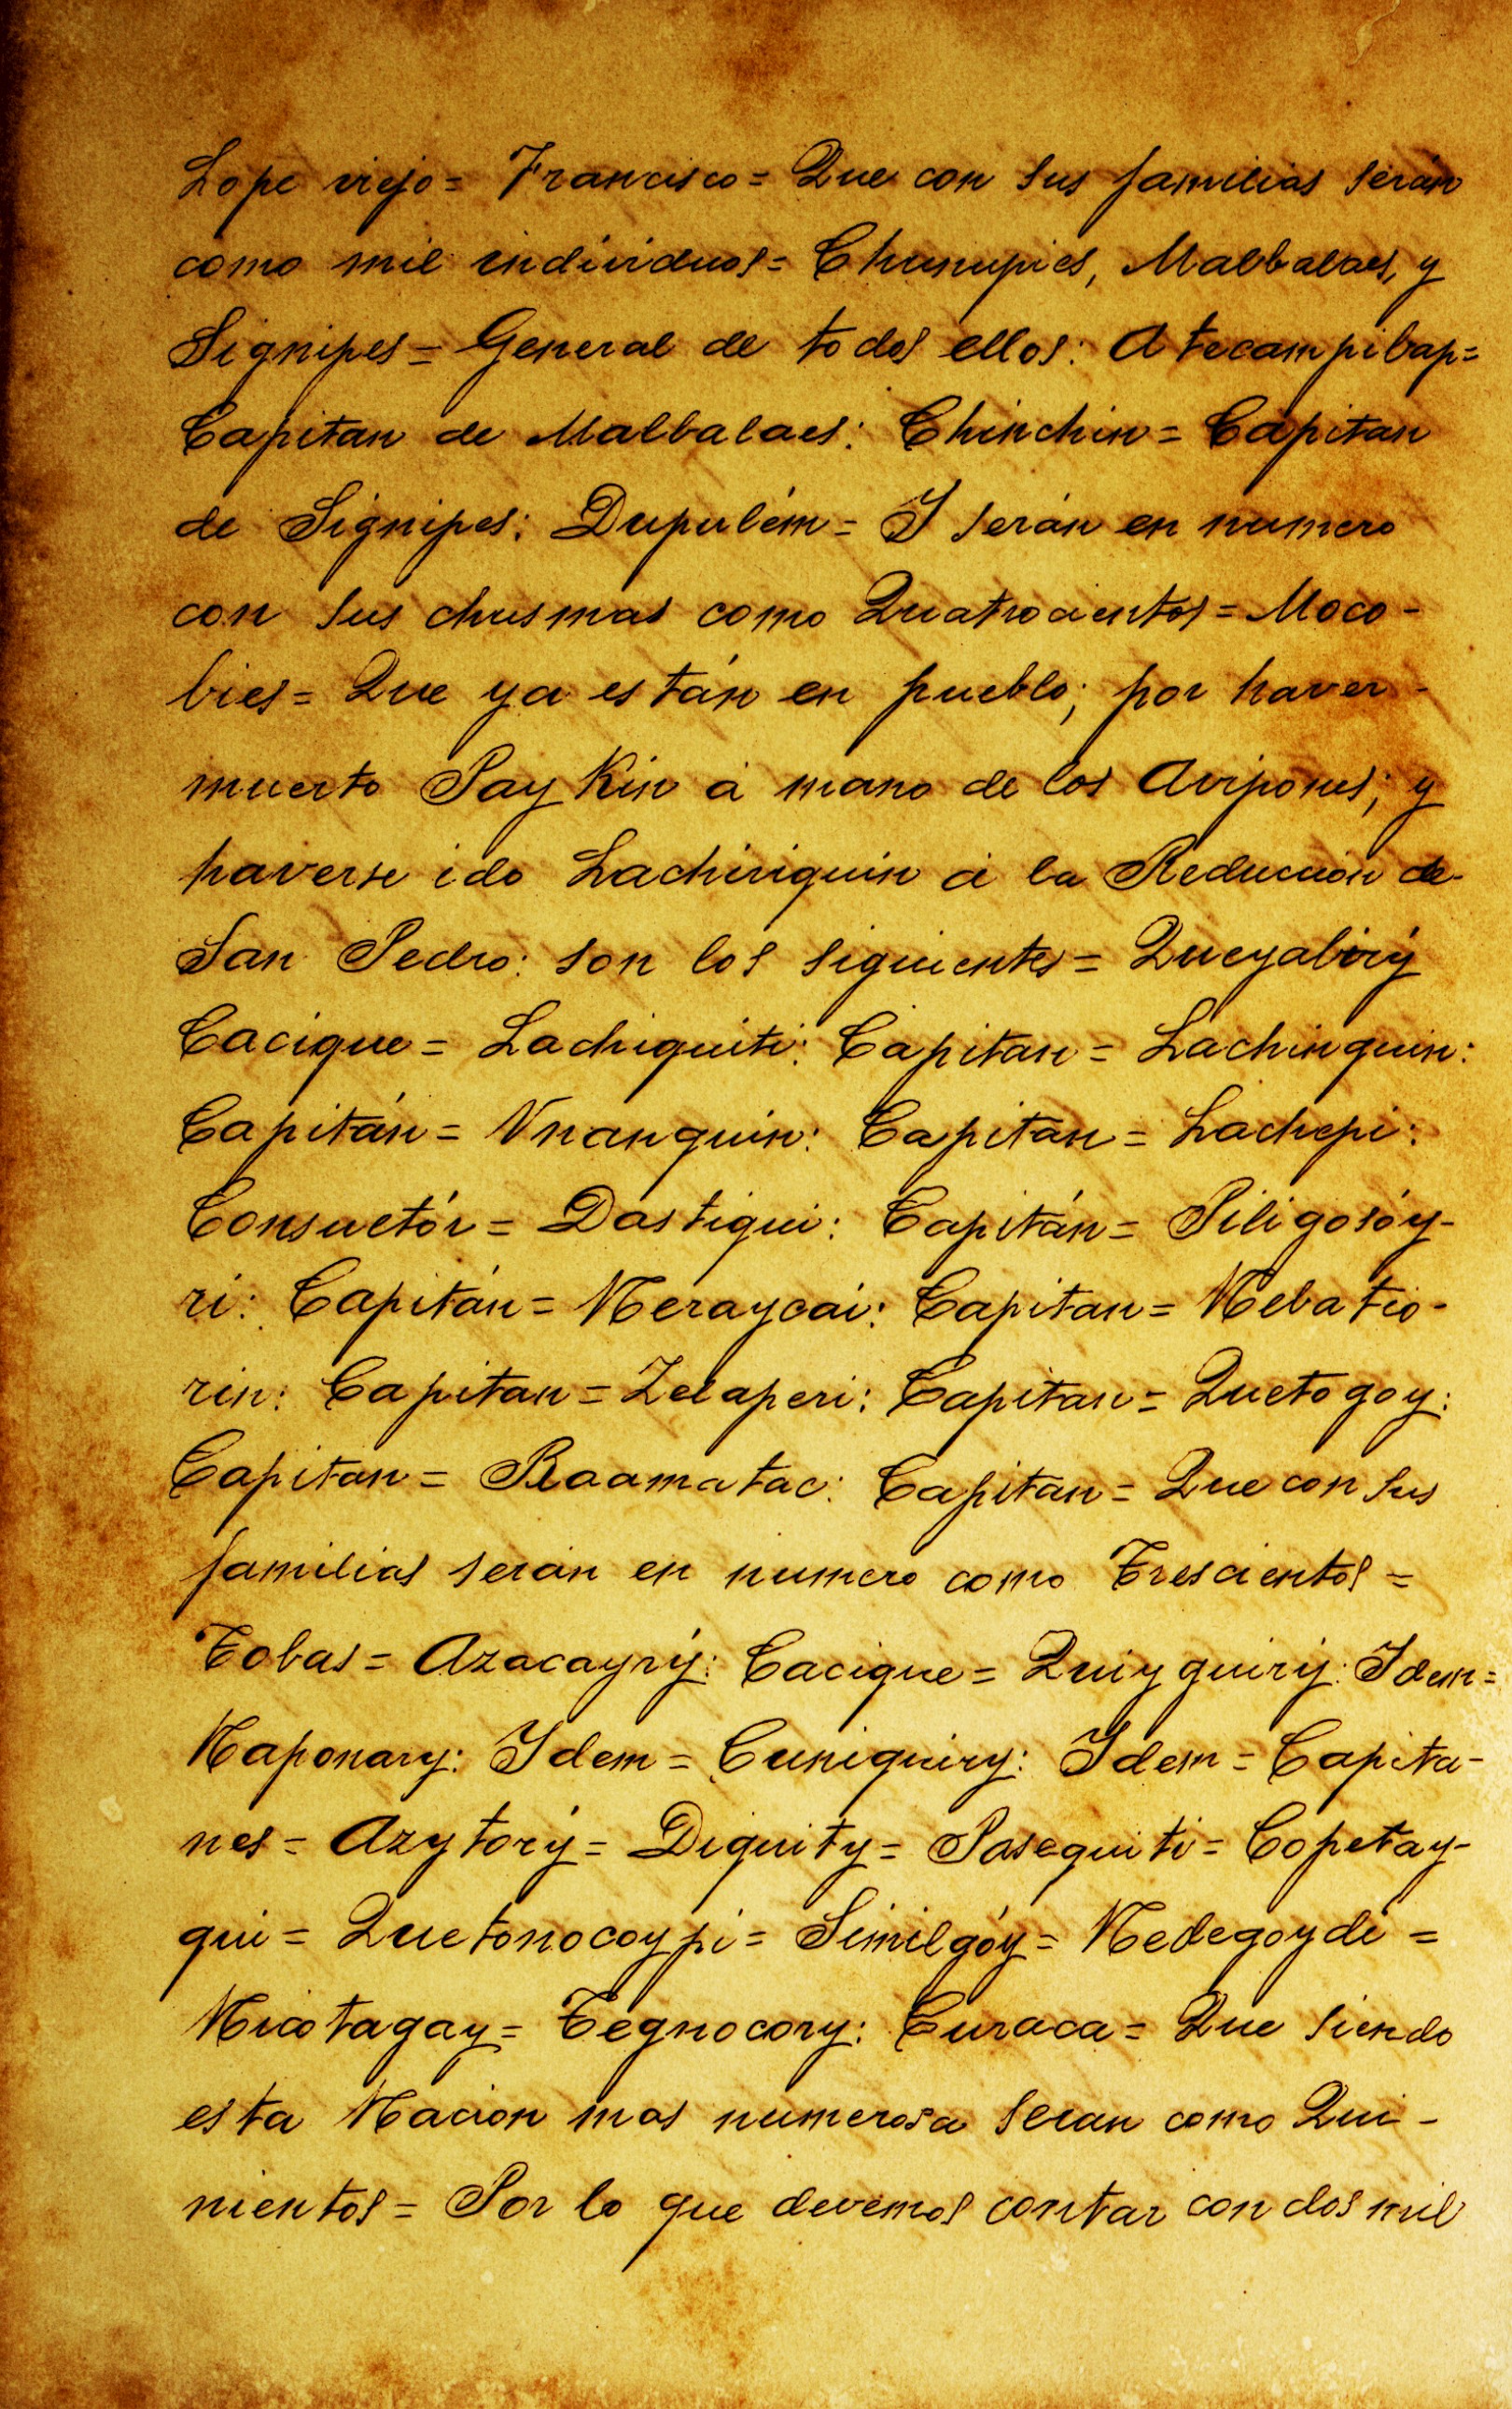 Lope viejo= Francisco= Que con sus familias serán
como mil individuos= Chunupies, Malbalaes, y
Signipes= General de todos ellos: Atecampibap=
Capitan de Malbalaes: Chinchin= Capitan
de Signipes: Dupulém= Y serán en numero
con sus chusmas como Quatrocientos= Moco-
bies= Que ya están en pueblo; por haver-
muerto Paykin á mano de los Avipones; y
haverse ido Lachiriquin á la Reduccion de-
San Pedro: son los siguientes= Queyabirý
Cacique= Lachiquiti: Capitan= Lachinquin:
Capitán= Vnanquin: Capitan= Lachepi:
Consuetór= Dastiqui: Capitán= Piligosóy-
ri: Capitán= Neraycai: Capitan= Nebatio-
rin: Capitan= Zelaperi: Capitan= Quetogoy:
Capitan= Raamatac: Capitan= Que con sus
familias serán en numero como Trescientos=
Tobas= Azacayrý: Cacique= Quiyquirý: Idem=
Naponary: Ydem= Cuniquiry: Ydem= Capita-
nes= Azytorý= Diquity= Pasequiti= Copetay-
qui= Quetonocoypi= Similgóy= Nedegoydi=
Nicotagay= Tegnocory: Curaca= Que siendo
esta Nacion mas numerosa seran como Qui-
nientos= Por lo que devemos contar con dos mil